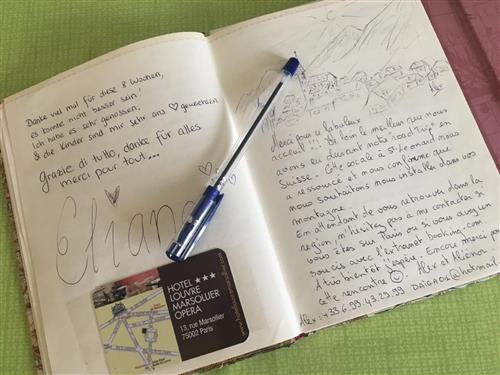 Danke viel mal für diese 8 Wochen,
es könnte nicht besser sein!
Ich habe es sehr genossen,
& die Kinder sind mir sehr ans ♡ gewachsen
Grazie di tutto, danke für alles
merci pour tout...
Eliana
HOTEL ★★★
LOUVRE
MARSOLLIER
OPERA
13, rue Marsollier
75002 Paris
Merci pour ce fabuleux
accueil!!! De loin le meilleur que nous
avons eu durant notre "road Trip" en
Suisse. Cette escale à St-Léonard nous
a ressourcé et nous confirme que
nous souhaitons nous installer dans vos
montagne.
En attendant de vous retrouver dans la
région, n'hésitez pas à me contacter si
vous êtes sur Paris ou si vous avez un
soucis avec l'extranet Booking.com.
A très bientôt j'espère. Encore merci pour
cette rencontre ☺. Alex et Aliénor
Alex: +33.6.99.43.25.99